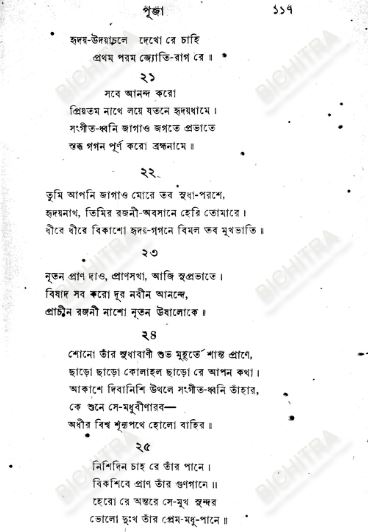 পূজা ১১৭
হৃদয়-উদয়াচলে দেখো রে চাহি
প্রথম পরম জ্যোতি-রাগ রে ॥
২১
সবে আনন্দ করো
প্রিয়তম নাথে লয়ে যতনে হৃদয়ধামে ।
সংগীত-ধ্বনি জাগাও জগতে প্রভাতে
স্তব্ধ গগন পূর্ণ করো ব্রহ্মনামে ॥
২২
তুমি আপনি জাগাও মোরে তব সুধা-পরশে,
হৃদয়নাথ, তিমির রজনী-অবসানে হেরি তোমারে ।
ধীরে ধীরে বিকাশো হৃদয়-গগনে বিমল তব মুখভাতি ॥
২৩
নূতন প্রাণ দাও, প্রাণসখা, আজি সুপ্রভাতে ।
বিষাদ সব করো দূর নবীন আনন্দে,
প্রাচীন রজনী নাশো নূতন উষালোকে ॥
২৪
শোনো তাঁর সুধাবাণী শুভ মুহূর্তে শান্ত প্রাণে,
ছাড়ো ছাড়ো কোলাহল ছাড়ো রে আপন কথা ।
আকাশে দিবানিশি উথলে সংগীত-ধ্বনি তাঁহার,
কে শুনে সে-মধুবীণারব—
অধীর বিশ্ব শূন্যপথে হোলো বাহির ॥
২৫
নিশিদিন চাহ রে তাঁর পানে ।
বিকশিবে প্রাণ তাঁর গুণগানে ॥
হেরো রে অন্তরে সে-মুখ সুন্দর
ভোলো দুঃখ তাঁর প্রেম-মধু-পানে ॥
BICHITRA
BICHITRA
BICHITRA
BICHITRA
BICHITRA
BICHITRA